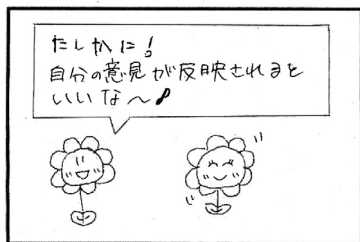 たしかに!
自分の意見が反映されると
いいな〜♪